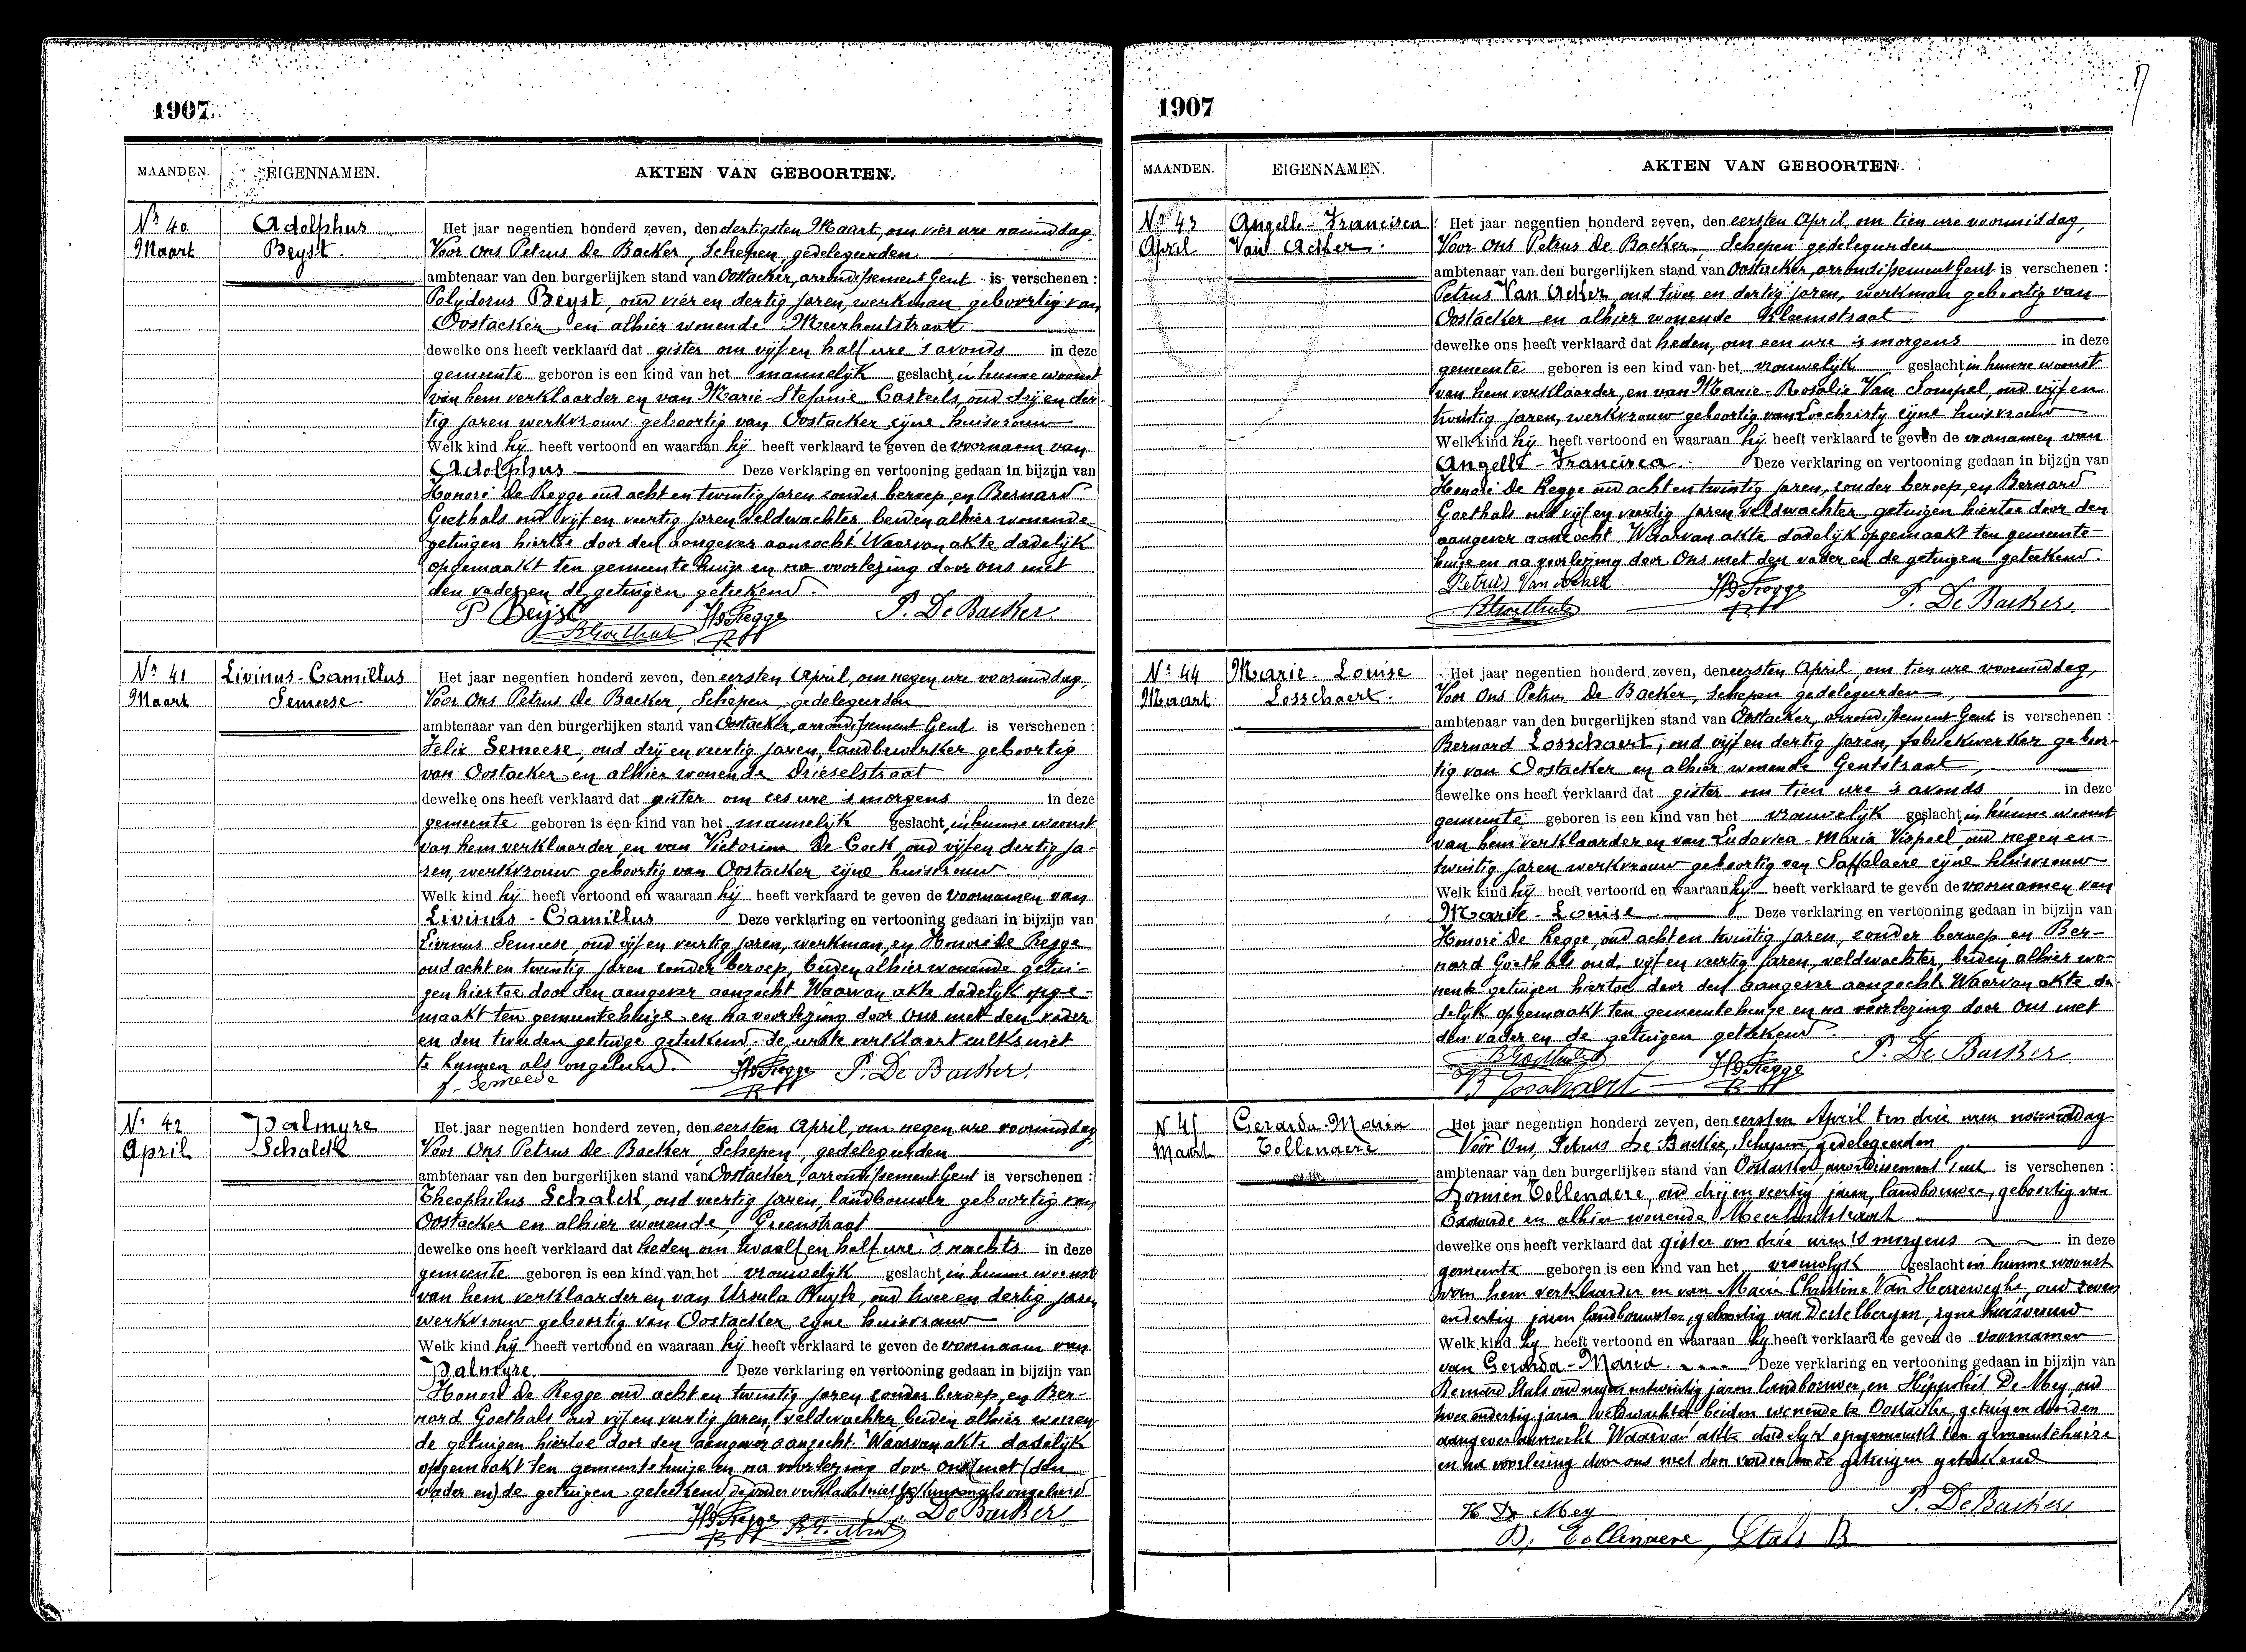 1907.
MAANDEN. EIGENNAMEN. AKTEN VAN GEBOORTEN.
Nr 40 Adolphus Het jaar negentien honderd zeven, den dertigsten Maart, om vier ure namiddag,
Maart Beyst. Voor Ons Petrus De Backer, Schepen, gedelegeerden
ambtenaar van den burgerlijken stand van Oostacker, arrondissement Gent is verschenen :
Polydorus Beyst, oud vier en dertig jaren, werkman geboortig van
Oostacker en alhier wonende Meerhoutstraat
dewelke ons heeft verklaard dat gister om vijf en half ure 's avonds in deze
gemeente geboren is een kind van het mannelijk geslacht, in hunne woonst
van hem verklaarder en van Marie-Stefanie Casteels, oud drij en der-
tig jaren werkvrouw geboortig van Oostacker zijne huisvrouw
Welk kind hij heeft vertoond en waaraan hij heeft verklaard te geven de voornaam van
Adolphus Deze verklaring en vertooning gedaan in bijzijn van
Honoré De Regge oud acht en twintig jaren zonder beroep, en Bernard
Goethals oud vijf en veertig jaren veldwachter, beiden alhier wonende
getuigen hiertoe door den aangever aanzocht Waarvan akte dadelijk
opgemaakt ten gemeente huize en na voorlezing door ons met
den vader en de getuigen geteekend.
P Beyst HDeRegge P. De Backer
BGoethals
Nr 41 Livinus-Camillus Het jaar negentien honderd zeven, den eersten April, om negen ure voormiddag,
Maart Semeese. Voor Ons Petrus De Backer, Schepen, gedelegeerden
ambtenaar van den burgerlijken stand van Oostacker, arrondissement Gent is verschenen :
Felix Semeese, oud drij en veertig jaren, landbewerker geboortig
van Oostacker en alhier wonende Drieselstraat
dewelke ons heeft verklaard dat gister om zes ure 's morgens in deze
gemeente geboren is een kind van het mannelijk geslacht, in hunne woonst
van hem verklaarder en van Victorina De Cock, oud vijf en dertig ja-
ren, werkvrouw geboortig van Oostacker zijne huisvrouw.
Welk kind hij heeft vertoond en waaraan hij heeft verklaard te geven de voornamen van
Livinus-Camillus Deze verklaring en vertooning gedaan in bijzijn van
Livinus Semeese, oud vijf en veertig jaren, werkman, en Honoré De Regge
oud acht en twintig jaren zonder beroep, beiden alhier wonende getui-
gen hiertoe door den aangever aanzocht Waarvan akte dadelijk opge-
maakt ten gemeentehuize en na voorlezing door Ons met den vader
en den tweeden getuige geteekend, de eerste verklaart zulks niet
te kunnen als ongeleerd. HDeRegge P. De Backer
f. Semeese
Nr 42 Palmyre Het jaar negentien honderd zeven, den eersten April, om negen ure voormiddag
April Schalck Voor Ons Petrus De Backer, Schepen, gedelegeerden
ambtenaar van den burgerlijken stand van Oostacker, arrondissement Gent is verschenen :
Theophilus Schalck, oud veertig jaren, landbouwer geboortig van
Oostacker en alhier wonende, Groenstraat
dewelke ons heeft verklaard dat heden om twaalf en half ure 's nachts in deze
gemeente geboren is een kind van het vrouwelijk geslacht, in hunne woonst
van hem verklaarder en van Ursula Huyls, oud twee en dertig jaren
werkvrouw geboortig van Oostacker zijne huisvrouw
Welk kind hij heeft vertoond en waaraan hij heeft verklaard te geven de voornaam van
Palmyre Deze verklaring en vertooning gedaan in bijzijn van
Honoré De Regge oud acht en twintig jaren zonder beroep, en Ber-
nard Goethals oud vijf en veertig jaren, veldwachter beiden alhier wonen
de getuigen hiertoe door den aangever aanzocht. Waarvan akte dadelijk
opgemaakt ten gemeentehuize en na voorlezing door ons (met (den
vader en) de getuigen geteekend de vader verklaart niet te kunnen als ongeleerd
HDeRegge P. De Backer
1907
MAANDEN. EIGENNAMEN. AKTEN VAN GEBOORTEN.
Nr 43 Angelle-Francisca Het jaar negentien honderd zeven, den eersten April, om tien ure voormiddag,
April Van Acker. Voor Ons Petrus De Backer, Schepen gedelegeerden
ambtenaar van den burgerlijken stand van Oostacker, arrondissement Gent is verschenen :
Petrus Van Acker, oud twee en dertig jaren, werkman geboortig van
Oostacker en alhier wonende Kleemstraat
dewelke ons heeft verklaard dat heden, om een ure 's morgens in deze
gemeente geboren is een kind van het vrouwelijk geslacht, in hunne woonst
van hem verklaarder, en van Marie-Rosalie Van Sompel, oud vijf en
twintig jaren, werkvrouw geboortig van Loochristy zijne huisvrouw
Welk kind hij heeft vertoond en waaraan hij heeft verklaard te geven de voornamen van
Angelle-Francisca. Deze verklaring en vertooning gedaan in bijzijn van
Honoré De Regge oud acht en twintig jaren, zonder beroep, en Bernard
Goethals oud vijf en veertig jaren veldwachter getuigen hiertoe door den
aangever aanzocht Waarvan akte dadelijk opgemaakt ten gemeente-
huize en na voorlezing door Ons met den vader en de getuigen geteekend.
Petrus Van Acker HDeRegge P. De Backer
BGoethals
Nr 44 Marie-Louise Het jaar negentien honderd zeven, den eersten April, om tien ure voormiddag,
Maart Losschaert. Voor Ons Petrus De Backer, Schepen gedelegeerden,
ambtenaar van den burgerlijken stand van Oostacker, arrondissement Gent is verschenen :
Bernard Losschaert, oud vijf en dertig jaren, fabriekwerker geboor-
tig van Oostacker en alhier wonende Gentstraat,
dewelke ons heeft verklaard dat gister om tien ure 's avonds in deze
gemeente geboren is een kind van het vrouwelijk geslacht, in hunne woonst
van hem verklaarder en van Ludovica-Maria Verspeel, oud negen en-
twintig jaren werkvrouw geboortig van Saffelaere zijne huisvrouw
Welk kind hij heeft vertoond en waaraan hij heeft verklaard te geven de voornamen van
Marie-Louise Deze verklaring en vertooning gedaan in bijzijn van
Honoré De Regge, oud acht en twintig jaren, zonder beroep en Ber-
nard Goethals oud vijf en veertig jaren, veldwachter, beiden alhier wo-
nende getuigen hiertoe door den aangever aangezocht Waarvan akte da-
delijk opgemaakt ten gemeentehuize en na voorlezing door Ons met
den vader en de getuigen geteekend.
BGoethals HDeRegge P. De Backer
B Losschaert
N 45 Gerarda-Maria Het jaar negentien honderd zeven, den eersten April ten drie uren namiddag
Maart Tollenaere Voor Ons, Petrus De Backer, Schepen, gedelegeerden
ambtenaar van den burgerlijken stand van Oostacker, arrondissement Gent is verschenen :
Domien Tollenaere, oud drij en veertig jaren, landbouwer, geboortig van
Exaarde en alhier wonende Meerhoutstraat
dewelke ons heeft verklaard dat gister om drie uren 's morgens in deze
gemeente geboren is een kind van het vrouwlijk geslacht in hunne woonst
van hem verklaarder en van Marie Christine Van Herreweghe, oud zeven
endertig jaren landbouwster, geboortig van Destelbergen, zijne huisvrouw
Welk kind hij heeft vertoond en waaraan hij heeft verklaard te geven de voornamen
van Gerarda-Maria Deze verklaring en vertooning gedaan in bijzijn van
Bernard Stals oud negen entwintig jaren landbouwer, en Hippoliet De Mey, oud
twee endertig jaren veldwachter beiden wonende te Oostacker, getuigen door den
aangever aanzocht Waarvan akte dadelijk opgemaakt ten gemeentehuize
en na voorlezing door ons met den vader en de getuigen geteekend
H De Mey P. De Backer
D. Tollenaere, Stals B